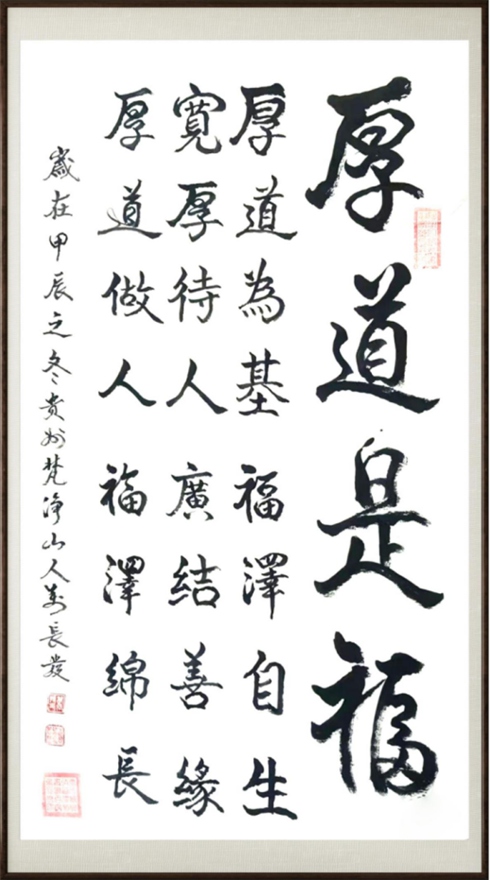 厚道是福
厚道為基福澤自生
寬厚待人廣結善緣
厚道做人福澤綿長
歲在甲辰之冬貴州梵淨山人萬長發